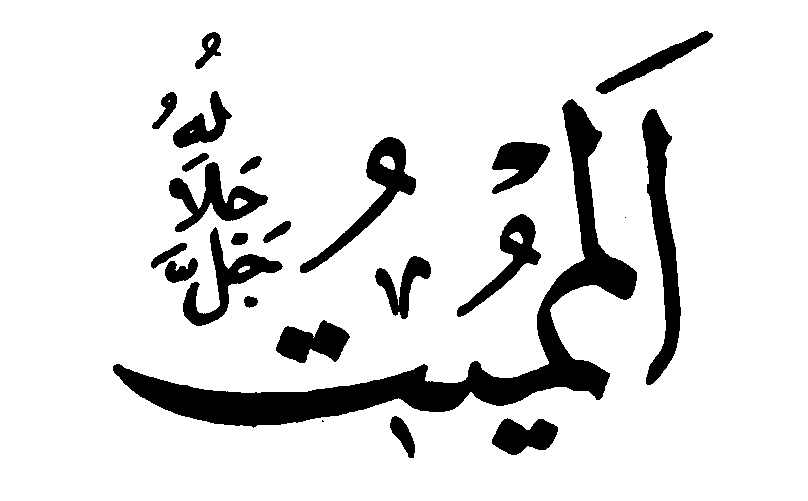 اَلْمُمِيتُ
جَلَّ جَلَالُهُ